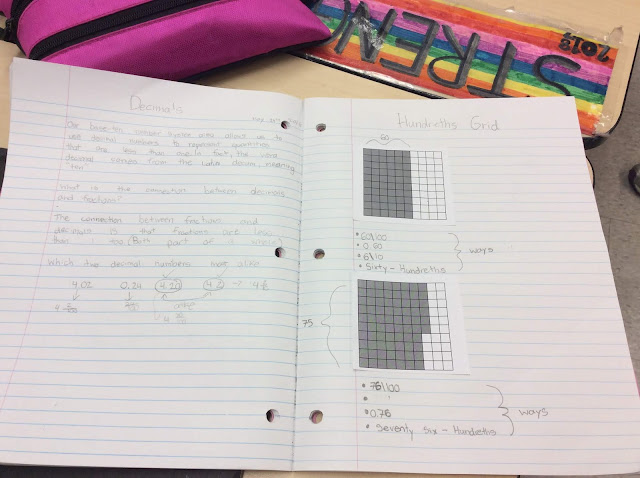 STREN
2013
Decimals
Our base-ten number system also allows us to
use decimal numbers to represent quantities
that are less than one. In fact, the word
decimal comes from the Latin decum, meaning
"ten"
What is the connection between decimals
and fractions?
The connection between fractions and
decimals is that fractions are less
than 1 too. (Both part of a whole)
Which two decimal numbers are alike
4.02 0.24 4.20 4.2 → 4
4
4
Hundreths Grid
60
• 60\100
• 0.60
• 6\10
• Sixty - Hundreths
ways
75
• 76\100
•
• 0.76
• Seventy Six - Hundreths
ways